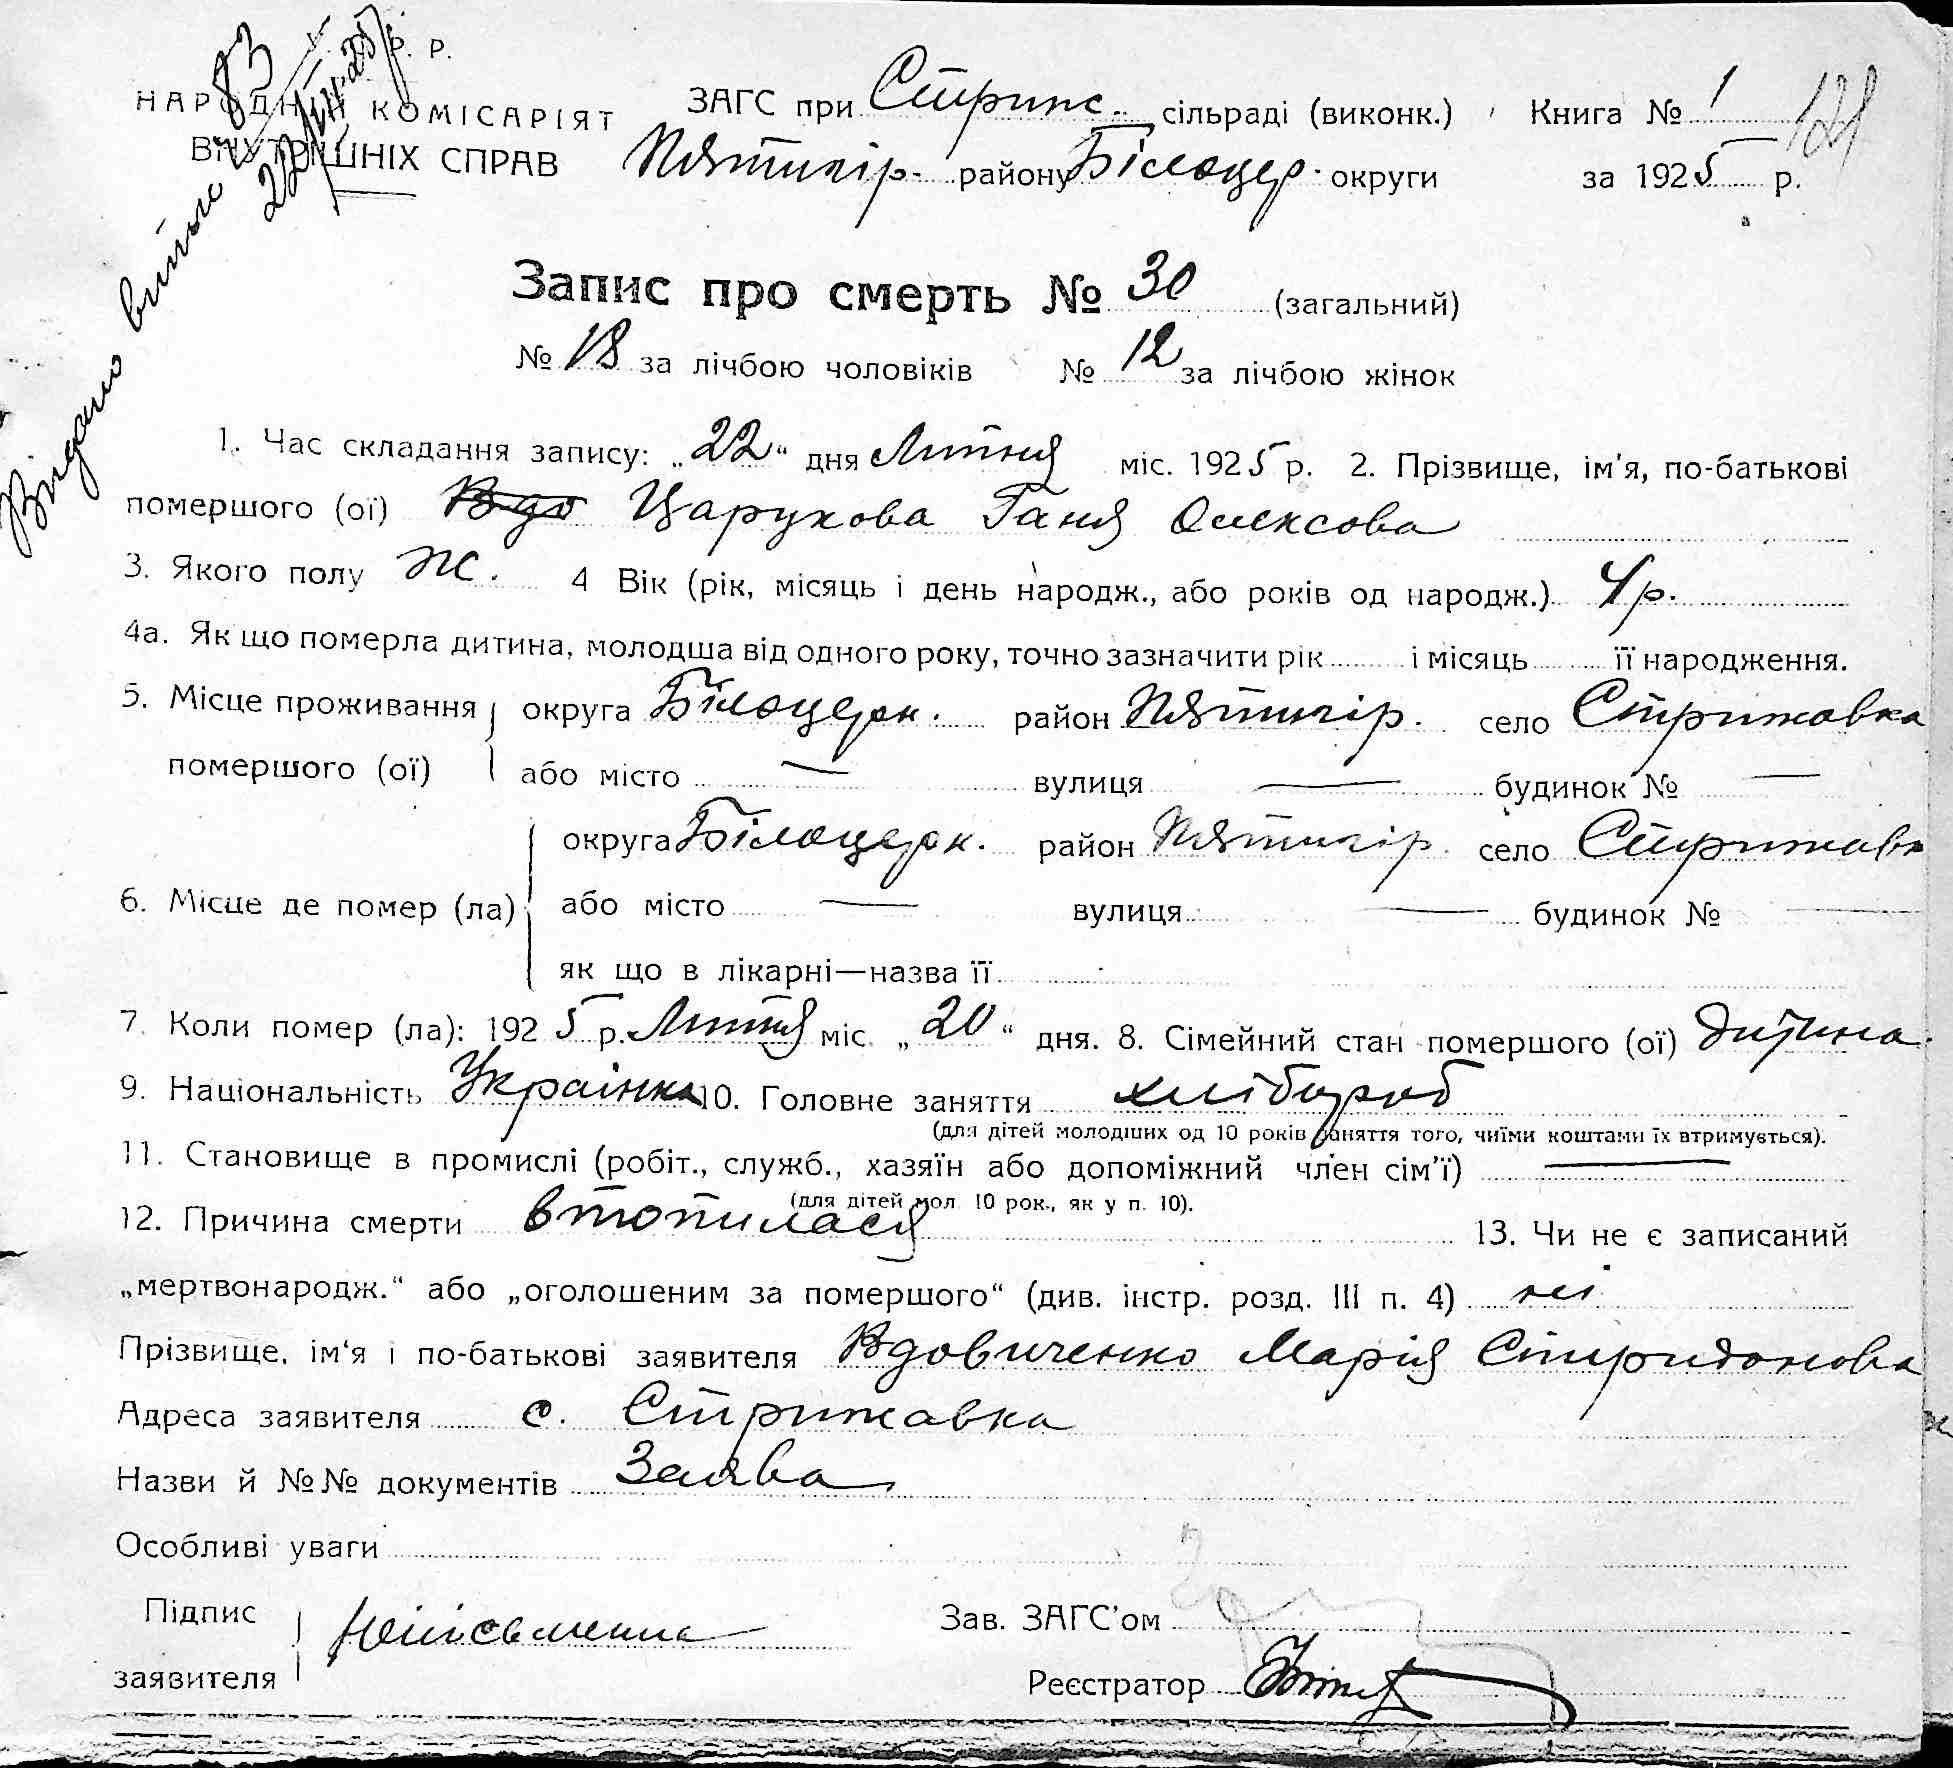 Р. Р.
НАРОДНІЙ КОМІСАРІЯТ
ВНУТРІШНІХ СПРАВ
Видано витяг
83
22/VII-25 р.
ЗАГС при Стриж. сільраді (виконк.) Книга № 1
121
Пятигір. району Білоцер. округи за 1925 р.
Запис про смерть № 30 (загальний)
№ 18 за лічбою чоловіків № 12 за лічбою жінок
1. Час складання запису: „22“ дня Липня міс. 1925 р. 2. Прізвище, ім'я, по-батькові
помершого (ої) Вдо Царукова Ганя Олексова
3. Якого полу Ж. 4 Вік (рік, місяць і день народж., або років од народж.) 4 р.
4а. Як що померла дитина, молодша від одного року, точно зазначити рік і місяць її народження.
5. Місце проживання округа Білоцерк. район Пятигір. село Стрижовка
помершого (ої) або місто — вулиця — будинок № —
округа Білоцерк. район Пятигір. село Стрижавк
6. Місце де помер (ла) або місто — вулиця — будинок № —
як що в лікарні—назва її
7. Коли помер (ла): 1925 р. Липня міс. „20“ дня. 8. Сімейний стан помершого (ої) дитина.
9. Національність Українка 10. Головне заняття хлібороб
(для дітей молодших од 10 років заняття того, чиїми коштами їх втримується).
11. Становище в промислі (робіт., служб., хазяїн або допоміжний член сім'ї) —
(для дітей мол. 10 рок., як у п. 10).
12. Причина смерти втопилася 13. Чи не є записаний
„мертвонародж.“ або „оголошеним за помершого“ (див. інстр. розд. III п. 4) ні
Прізвище, ім'я і по-батькові заявителя Вдовиченко Марія Спиридонова
Адреса заявителя с. Стрижавка
Назви й №№ документів Заява
Особливі уваги
Підпис заявителя Непісьменна
Зав. ЗАГС'ом
Реєстратор